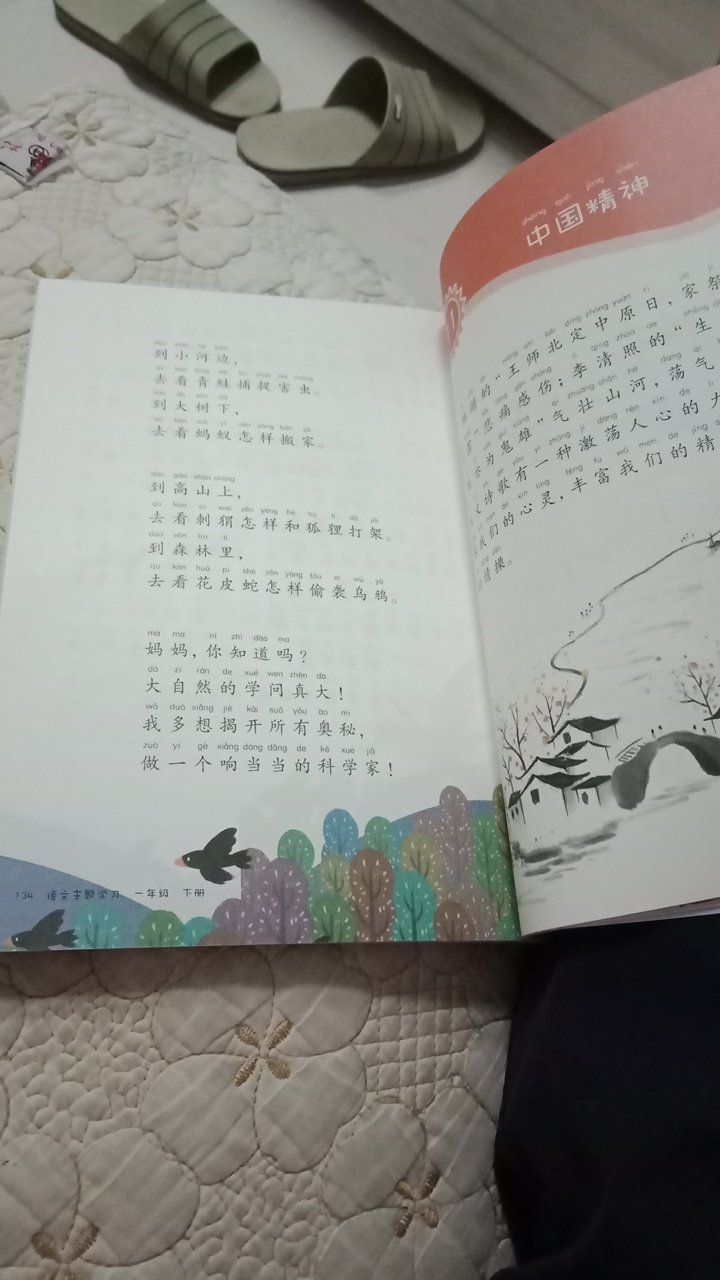 dào xiǎo hé biān
到小河边，
去看青蛙捕捉害虫。
到大树下，
去看蚂蚁怎样搬家。
dào gāo shān shàng
到高山上，
去看刺猬怎样和狐狸打架。
dào sēn lín lǐ
到森林里，
qù kàn huā pí shé zěn yàng tōu xí wū yā
去看花皮蛇怎样偷袭乌鸦。
mā ma nǐ zhī dào ma
妈妈，你知道吗？
dà zì rán de xué wen zhēn dà
大自然的学问真大！
wǒ duō xiǎng jiē kāi suǒ yǒu ào mì
我多想揭开所有奥秘，
zuò yí gè xiǎng dāng dāng de kē xué jiā
做一个响当当的科学家！
134 语文主题学习 一年级 下册
zhōng guó jīng shén
中国精神
1
的“王师北定中原日，家祭
悲痛感伤；李清照的“生
为鬼雄”气壮山河，荡气
诗歌有一种激荡人心的力
我们的心灵，丰富我们的精
情操。